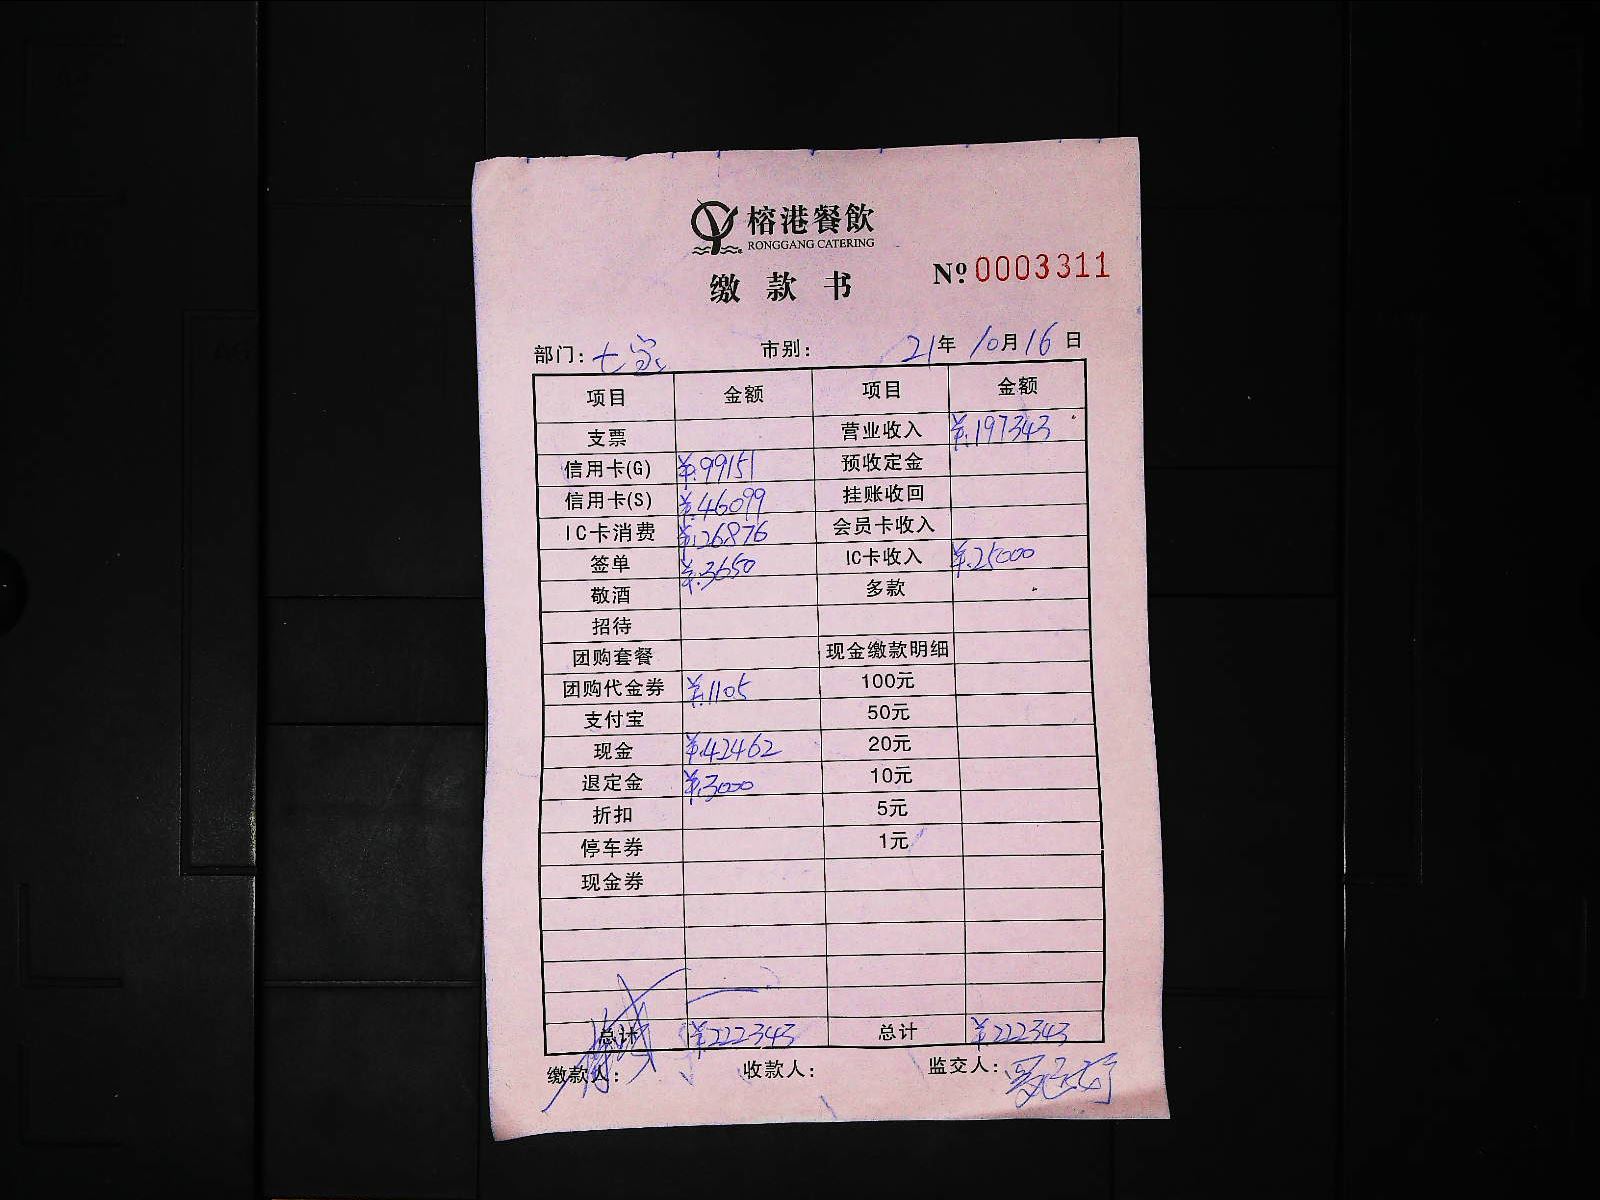 榕港餐飲
RONGGANG CATERING
缴款书 Nº 0003311
部门: 七家 市别: 21年10月16日
项目 金额 项目 金额
支票 营业收入 ¥.197343
信用卡(G) ¥.99151 预收定金
信用卡(S) ¥.46099 挂账收回
IC卡消费 ¥.26876 会员卡收入
签单 ¥.3650 IC卡收入 ¥.25000
敬酒 多款
招待
团购套餐 现金缴款明细
团购代金券 ¥.1105 100元
支付宝 50元
现金 ¥.42462 20元
退定金 ¥.3000 10元
折扣 5元
停车券 1元
现金券
总计 ¥222343 总计 ¥222343
缴款人: 收款人: 监交人: